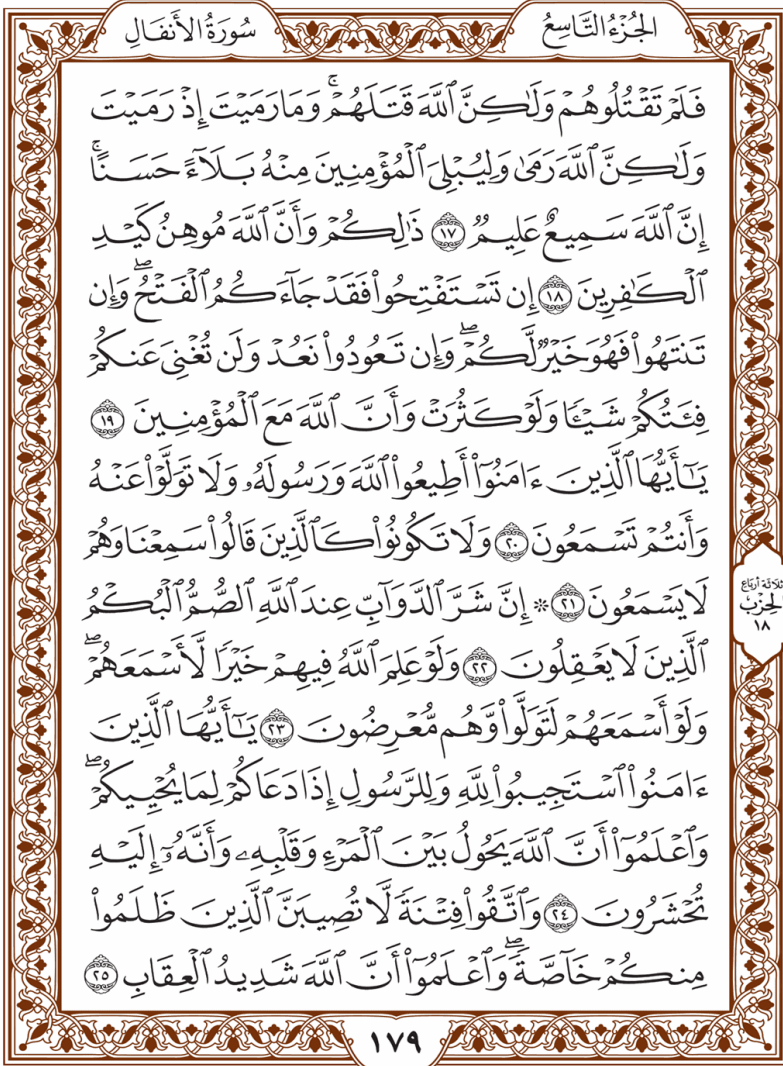 الجُزْءُ التَّاسِعُ
سُورَةُ الأَنفَالِ
فَلَمْ تَقْتُلُوهُمْ وَلَٰكِنَّ ٱللَّهَ قَتَلَهُمْ ۚ وَمَا رَمَيْتَ إِذْ رَمَيْتَ
وَلَٰكِنَّ ٱللَّهَ رَمَىٰ وَلِيُبْلِىَ ٱلْمُؤْمِنِينَ مِنْهُ بَلَآءً حَسَنًا ۚ
إِنَّ ٱللَّهَ سَمِيعٌ عَلِيمٌ ١٧ ذَٰلِكُمْ وَأَنَّ ٱللَّهَ مُوهِنُ كَيْدِ
ٱلْكَٰفِرِينَ ١٨ إِن تَسْتَفْتِحُوا۟ فَقَدْ جَآءَكُمُ ٱلْفَتْحُ ۖ وَإِن
تَنتَهُوا۟ فَهُوَ خَيْرٌ لَّكُمْ ۖ وَإِن تَعُودُوا۟ نَعُدْ وَلَن تُغْنِىَ عَنكُمْ
فِئَتُكُمْ شَيْـًٔا وَلَوْ كَثُرَتْ وَأَنَّ ٱللَّهَ مَعَ ٱلْمُؤْمِنِينَ ١٩
يَٰٓأَيُّهَا ٱلَّذِينَ ءَامَنُوٓا۟ أَطِيعُوا۟ ٱللَّهَ وَرَسُولَهُۥ وَلَا تَوَلَّوْا۟ عَنْهُ
وَأَنتُمْ تَسْمَعُونَ ٢٠ وَلَا تَكُونُوا۟ كَٱلَّذِينَ قَالُوا۟ سَمِعْنَا وَهُمْ
لَا يَسْمَعُونَ ٢١ ۞ إِنَّ شَرَّ ٱلدَّوَآبِّ عِندَ ٱللَّهِ ٱلصُّمُّ ٱلْبُكْمُ
ٱلَّذِينَ لَا يَعْقِلُونَ ٢٢ وَلَوْ عَلِمَ ٱللَّهُ فِيهِمْ خَيْرًا لَّأَسْمَعَهُمْ ۖ
وَلَوْ أَسْمَعَهُمْ لَتَوَلَّوا۟ وَّهُم مُّعْرِضُونَ ٢٣ يَٰٓأَيُّهَا ٱلَّذِينَ
ءَامَنُوا۟ ٱسْتَجِيبُوا۟ لِلَّهِ وَلِلرَّسُولِ إِذَا دَعَاكُمْ لِمَا يُحْيِيكُمْ ۖ
وَٱعْلَمُوٓا۟ أَنَّ ٱللَّهَ يَحُولُ بَيْنَ ٱلْمَرْءِ وَقَلْبِهِۦ وَأَنَّهُۥٓ إِلَيْهِ
تُحْشَرُونَ ٢٤ وَٱتَّقُوا۟ فِتْنَةً لَّا تُصِيبَنَّ ٱلَّذِينَ ظَلَمُوا۟
مِنكُمْ خَآصَّةً ۖ وَٱعْلَمُوٓا۟ أَنَّ ٱللَّهَ شَدِيدُ ٱلْعِقَابِ ٢٥
ثلاثة أرباع
الحزب
١٨
١٧٩